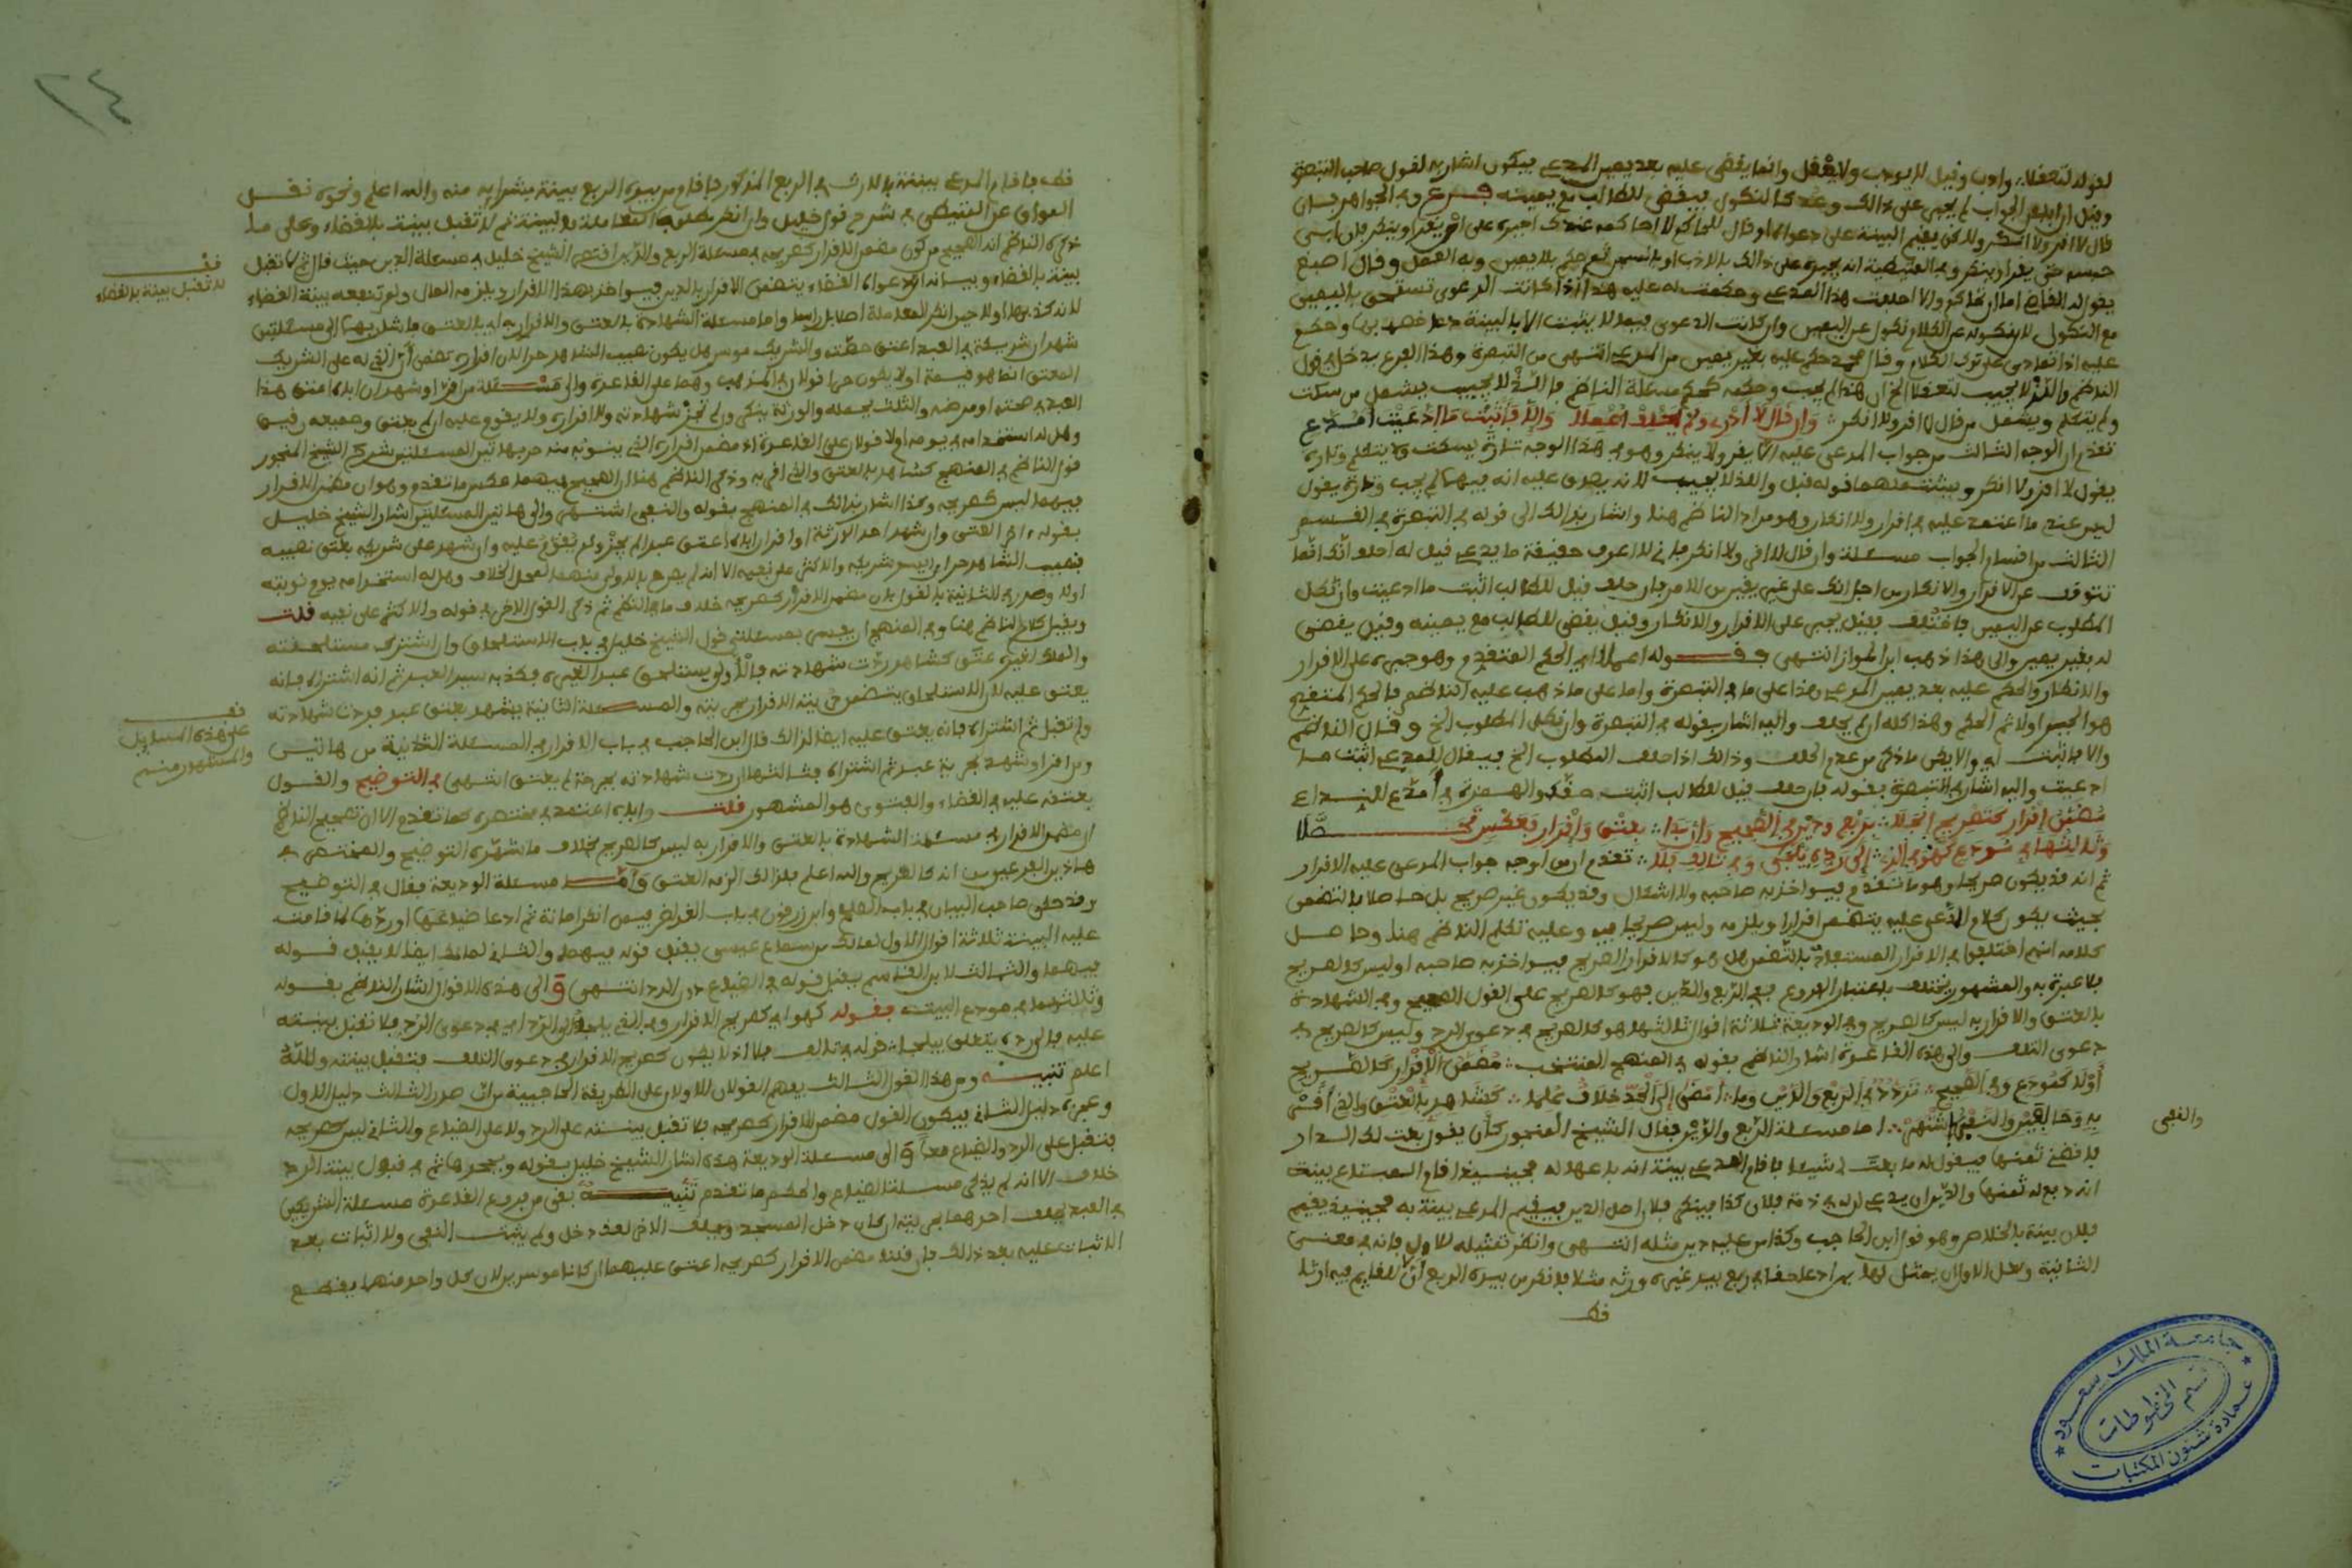 لقوله لتعفلا وادب وقيل لا يودب ولا يغفل وانما يقضى عليه بعد يمين المدعي فيكون اشار به لقول صاحب التبصرة
وقيل ان ابى من الجواب لم يجبر على ذالك وعد كالنكول فيقضى للطالب مع يمينه فرع وفي الجواهر فان
قال لا اقر ولا انكر ولاكن يقيم البينة على دعواه وقال للحاكم لا احاكمه عندك اجبره على ان يقر او ينكر فان ابى
حبسه حتى يقر او ينكر وفي العتبية انه يجبره على ذالك بالادب او بالسجن ثم حكم بلا يمين وبه العمل وقال اصبغ
يقول له القاضي اما ان تحاكم والا احلفت هذا المدعي وحكمت له عليه هذا اذا كانت الدعوى تستحق باليمين
مع النكول لان نكوله عن الكلام نكول عن اليمين وان كانت الدعوى فيما لا يثبت الا بالبينة دعا خصمه بها وحكم
عليه اذا تمادى على ترك الكلام وقال محمد حكم عليه بغير يمين من المدعي انتهى من التبصرة وهذا الفرع يدخل في قول
الناظم والذ لا يجيب لتعفلا الخ ان هذا لم يجب وحكمه حكم مسئلة الناظم فالذ لا يجيب يشمل من سكت
ولم يتكلم ويشمل من قال لا اقر ولا انكر وان قال لا ادري ولم يحلف اعملا والا فاثبت ما ادعيت امدع
تقدم ان الوجه الثالث من جواب المدعى عليه الا يقر ولا ينكر وهو في هذا الوجه تارة يسكت ولا يتكلم وتارة
يقول لا اقر ولا انكر ويشملهما قوله قبل والذ لا يجيب لانه يصدق عليه انه فيهما لم يجب وتارة يقول
ليس عندي ما اعتمد عليه في اقرار ولا انكار وهو مراد الناظم هنا واشار بذالك الى قوله في التبصرة في القسم
الثالث من اقسام الجواب مسئلة وان قال لا اقر ولا انكر فاني لا اعرف حقيقة ما يدعي قيل له احلف انك انما
تتوقف عن الاقرار والانكار من اجل انك على غير يقين من الامر فان حلف قيل للطالب اثبت ما ادعيت وان نكل
المطلوب عن اليمين فاختلف فقيل يجبر على الاقرار والانكار وقيل يقضى للطالب مع يمينه وقيل يقضى
له بغير يمين والى هذا ذهب ابن المواز انتهى فقوله اعملا اي الحكم المتقدم وهو جبره على الاقرار
والانكار والحكم عليه بعد يمين المدعي هذا على ما في التبصرة واما على ما ذهب عليه الناظم فالحكم المتقدم
هو الجبر اولا ثم الحكم وهذا كله ان لم يحلف واليه اشار بقوله في التبصرة وان نكل المطلوب الخ وقال الناظم
والا فاثبت اي والا يكن ما ذكر من عدم الحلف وذالك اذا حلف المطلوب الخ فيقال للمدعي اثبت ما
ادعيت واليه اشار في التبصرة بقوله فان حلف قيل للطالب اثبت حقك والهمزة في امدع للنداء
مضمن اقرار كتصريح انجلا بربع ودين في الصحيح وان بدا بعتق واقرار بعكس تحصلا
وثالثها في مودع كهو في الرد الى رده يلغى وفي تالف بلا تقدم ان من اوجه جواب المدعى عليه الاقرار
ثم انه قد يكون صريحا وهو ما تقدم فيواخذ به صاحبه ولا اشكال وقد يكون غير صريح بل حاصلا بالتضمن
بحيث يكون كلام المدعى عليه يتضمن اقرارا ويلزمه وليس صريحا فيه وعليه تكلم الناظم هنا وحاصل
كلامه انهم اختلفوا في الاقرار المستفاد بالتضمن هل هو كالاقرار الصريح فيواخذ به صاحبه او ليس كالصريح
فلا عبرة به والمشهور يختلف باعتبار الفروع ففي الربع والدين فهو كالصريح على القول الصحيح وفي الشهادة
بالعتق والاقرار به ليس كالصريح وفي الوديعة ثلاثة اقوال ثالثها هو كالصريح في دعوى الرد وليس كالصريح في
دعوى التلف والى هذه القاعدة اشار الناظم بقوله في المنهج المنتخب مضمن الاقرار كالصريح
او لا كمودع وفي الصحيح تردد في الربع والدين وما امضى الى الحد خلاف علما كشاهد بالعتق والذ اقر
به وحالفين والنفي اشتهر اما مسئلة الربع والدين فقال الشيخ المنجور كان يقول بعت لك الدار
فاقضني ثمنها فيقول له ما بعت لي شيئا فاقام المدعي بينة انه باعها له فحينئذ اقام المبتاع بينة
انه دفع له ثمنها والدين ان يدعي ان له في ذمة فلان كذا فينكر فلان اصل الدين فيقيم المدعي بينة به فحينئذ يقيم
فلان بينة بالخلاص وهو قول ابن الحاجب وكذا من عليه دين مثله انتهى وانظر تمثيله للاول فانه في معنى
الثانية ولعل الاول ان يمثل لها بمن ادعا حقا في ربع بيد غيره ورثه مثلا فانكر من بيده الربع ان للقايم فيه ارثا
والنفي
فط
جامعة الملك سعود
قسم المخطوطات
عمادة شئون المكتبات
٢٤
فط فاقام المدعي بينة بالارث في الربع المذكور فاقام من بيده الربع بينة بشرايه منه والله اعلم ونحوه نقل
المواق عن المتيطي في شرح قول خليل وان انكر مطلوب المعاملة فالبينة ثم لا تقبل بينة بالقضاء وعلى ما
ذكره الناظم انه الصحيح من كون مضمن الاقرار كصريحه في مسئلة الربع والدين اقتصر الشيخ خليل في مسئلة الدين حيث قال ثم لا تقبل
بينة بالقضاء وبيانه ان دعواه القضاء يتضمن الاقرار بالدين فيواخذ بهذا الاقرار ويلزمه المال ولم تنفعه بينة القضاء
لانه كذبها اولا حين انكر المعاملة اصلا بل راسا واما مسئلة الشهادة بالعتق والاقرار به اي بالعتق فاشار بهما الى مسئلتين
فقـ
لا تقبل بينة بالقضاء
شهد ان شريكه في العبد اعتق حظه والشريك موسر هل يكون نصيب الشاهد حرا لان اقراره تضمن ان الذي له على الشريك
المعتق انما هو قيمة او لا يكون حرا قولان في المذهب وهما على القاعدة والى مسئلة من اقر او شهد ان اباه اعتق هذا
العبد في صحته او مرضه والثلث يحمله والورثة ينكرون لم تجز شهادته ولا اقراره ولا يقوم عليه ان لم يعتق وجميعه رقيق
وهل له استخدامه في يومه ام لا قولان على القاعدة اذ مضمن اقراره الذي ينوبه منه حر بهاتين المسئلتين شرح الشيخ المنجور
قول الناظم في المنهج كشاهد بالعتق والذ اقر به وذكر الناظم هنا ان الصحيح فيهما عكس ما تقدم وهو ان مضمن الاقرار
فيهما ليس كصريحه وكذا اشار بذالك في المنهج بقوله والنفي اشتهر والى هاتين المسئلتين اشار الشيخ خليل
بقوله اخر العتق وان شهد احد الورثة او اقر ان اباه اعتق عبدا لم يجز ولم يقوم عليه وان شهد على شريكه بعتق نصيبه
فنصيب الشاهد حر ان ايسر شريكه والاكثر على نفيه الا انه لم يصرح بالاولى منهما بمحل الخلاف وهل له استخدامه يوم نوبته
او لا وصدر في الثانية بالقول بان مضمن الاقرار كصريحه خلاف ما في النظم ثم ذكر القول الاخر في قوله والاكثر على نفيه قلت
ويقبل كلام الناظم هنا وفي المنهج ان يفسر بمسئلتي قول الشيخ خليل في باب الاستلحاق وان اشترى مستلحقه
والملك لغيره عتق كشاهد ردت شهادته فالاولى يستلحق عبد الغيره فكذبه سيد العبد ثم انه اشتراه فانه
يعتق عليه لان الاستلحاق يتضمن حريته الاقرار بحريته والمسئلة الثانية يشهد بعتق عبد فردت شهادته
ولم تقبل ثم اشتراه فانه يعتق عليه ايضا لذالك قال ابن الحاجب في باب الاقرار في المسئلة الثانية من هاتين
فقـ
على هذه المسائل
والمشهور منهم
ومن اقر او شهد بحرية عبد ثم اشتراه فثالثها ان ردت شهادته بجرحة لم يعتق انتهى في التوضيح والقول
بعتقه عليه في القضاء والفتوى هو المشهور قلت والذي اعتمد في مختصره كما تقدم الا ان تصحيح الناظم
ان مضمن الاقرار في مسئلة الشهادة بالعتق والاقرار به ليس كالصريح بخلاف ما شهره في التوضيح والمختصر في
هاذين الفرعين من انه كالصريح والله اعلم فلذالك الزمه العتق واما مسئلة الوديعة فقال في التوضيح
وقد حكى صاحب البيان في باب الصلح وابن زرقون في باب القراض فيمن انكر امانة ثم ادعا ضياعها او ردها لما قامت
عليه البينة ثلاثة اقوال الاول لمالك من سماع عيسى يقبل قوله فيهما والثاني لمالك ايضا لا يقبل قوله
فيهما والثالث لابن القاسم يقبل قوله في الضياع دون الرد انتهى والى هذه الاقوال اشار الناظم بقوله
وثالثها في مودع البيت فقوله كهو اي كصريح الاقرار وفي الرد اي في دعوى الرد فلا تقبل بينته
عليه فالى رده يتعلق بيلغى قوله في تالف بلا اذ لا يكون كصريح الاقرار في دعوى التلف فتقبل بينته والله
اعلم تنبيه ومن هذا القول الثالث يفهم القولان الاولان على الطريقة الحاجبية من ان صدر الثالث دليل الاول
وعجزه دليل الثاني فيكون القول مضمن الاقرار كصريحه فلا تقبل بينته على الرد ولا على الضياع والثاني ليس كصريحه
فتقبل على الرد والضياع معا والى مسئلة الوديعة هذه اشار الشيخ خليل بقوله وبجحدها ثم في قبول بينة الرد
خلاف الا انه لم يذكر مسئلة الضياع والحكم ما تقدم تنبيه بقي من فروع القاعدة مسئلة الشريكين
في العبد يحلف احدهما بحريته ان كان دخل المسجد ويحلف الاخر لقد دخل ولم يثبت النفي ولا اثبات بعد
الاثبات عليه بعد ذالك فان قلنا مضمن الاقرار كصريحه اعتق عليهما ان كانا موسرين لان كل واحد منهما يقطع